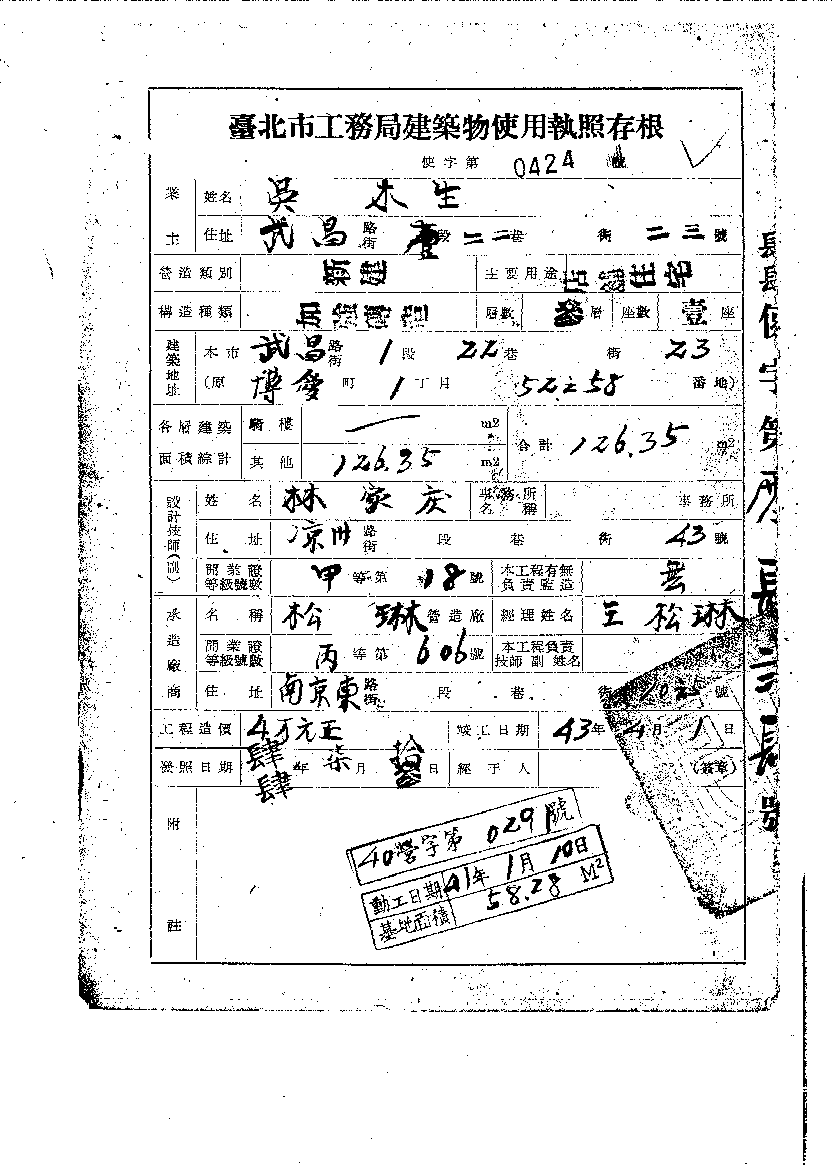 臺北市工務局建築物使用執照存根
使字第 0424 號
業主 姓名 吳木生
住址 武昌路街 壹段 二二巷 街 二三號
營造類別 新建 主要用途 店舖住宅
構造種類 加強磚造 層數 叁層 座數 壹座
建築地址 本市 武昌路街 1段 22巷 街 23
(原 博愛町 1丁目 52之58 番地)
各層建築面積綜計 騎樓 — m2 合計 126.35 m2
其他 126.35 m2
設計技師(副) 姓名 林家庆 事務所名稱 事務所
住址 凉州路街 段 巷 街 43號
開業證等級號數 甲等第 18號 本工程有無負責監造 無
承造廠商 名稱 松琳營造廠 經理姓名 王松琳
開業證等級號數 丙等第 606號 本工程負責技師副姓名
住址 南京東路街 段 巷 街 號
工程造價 4万元正 竣工日期 43年 4月 1日
發照日期 肆肆年 柒月 日 經手人 (簽章)
附註
40營字第 0291號
動工日期 41年1月10日
基地面積 58.28 M²